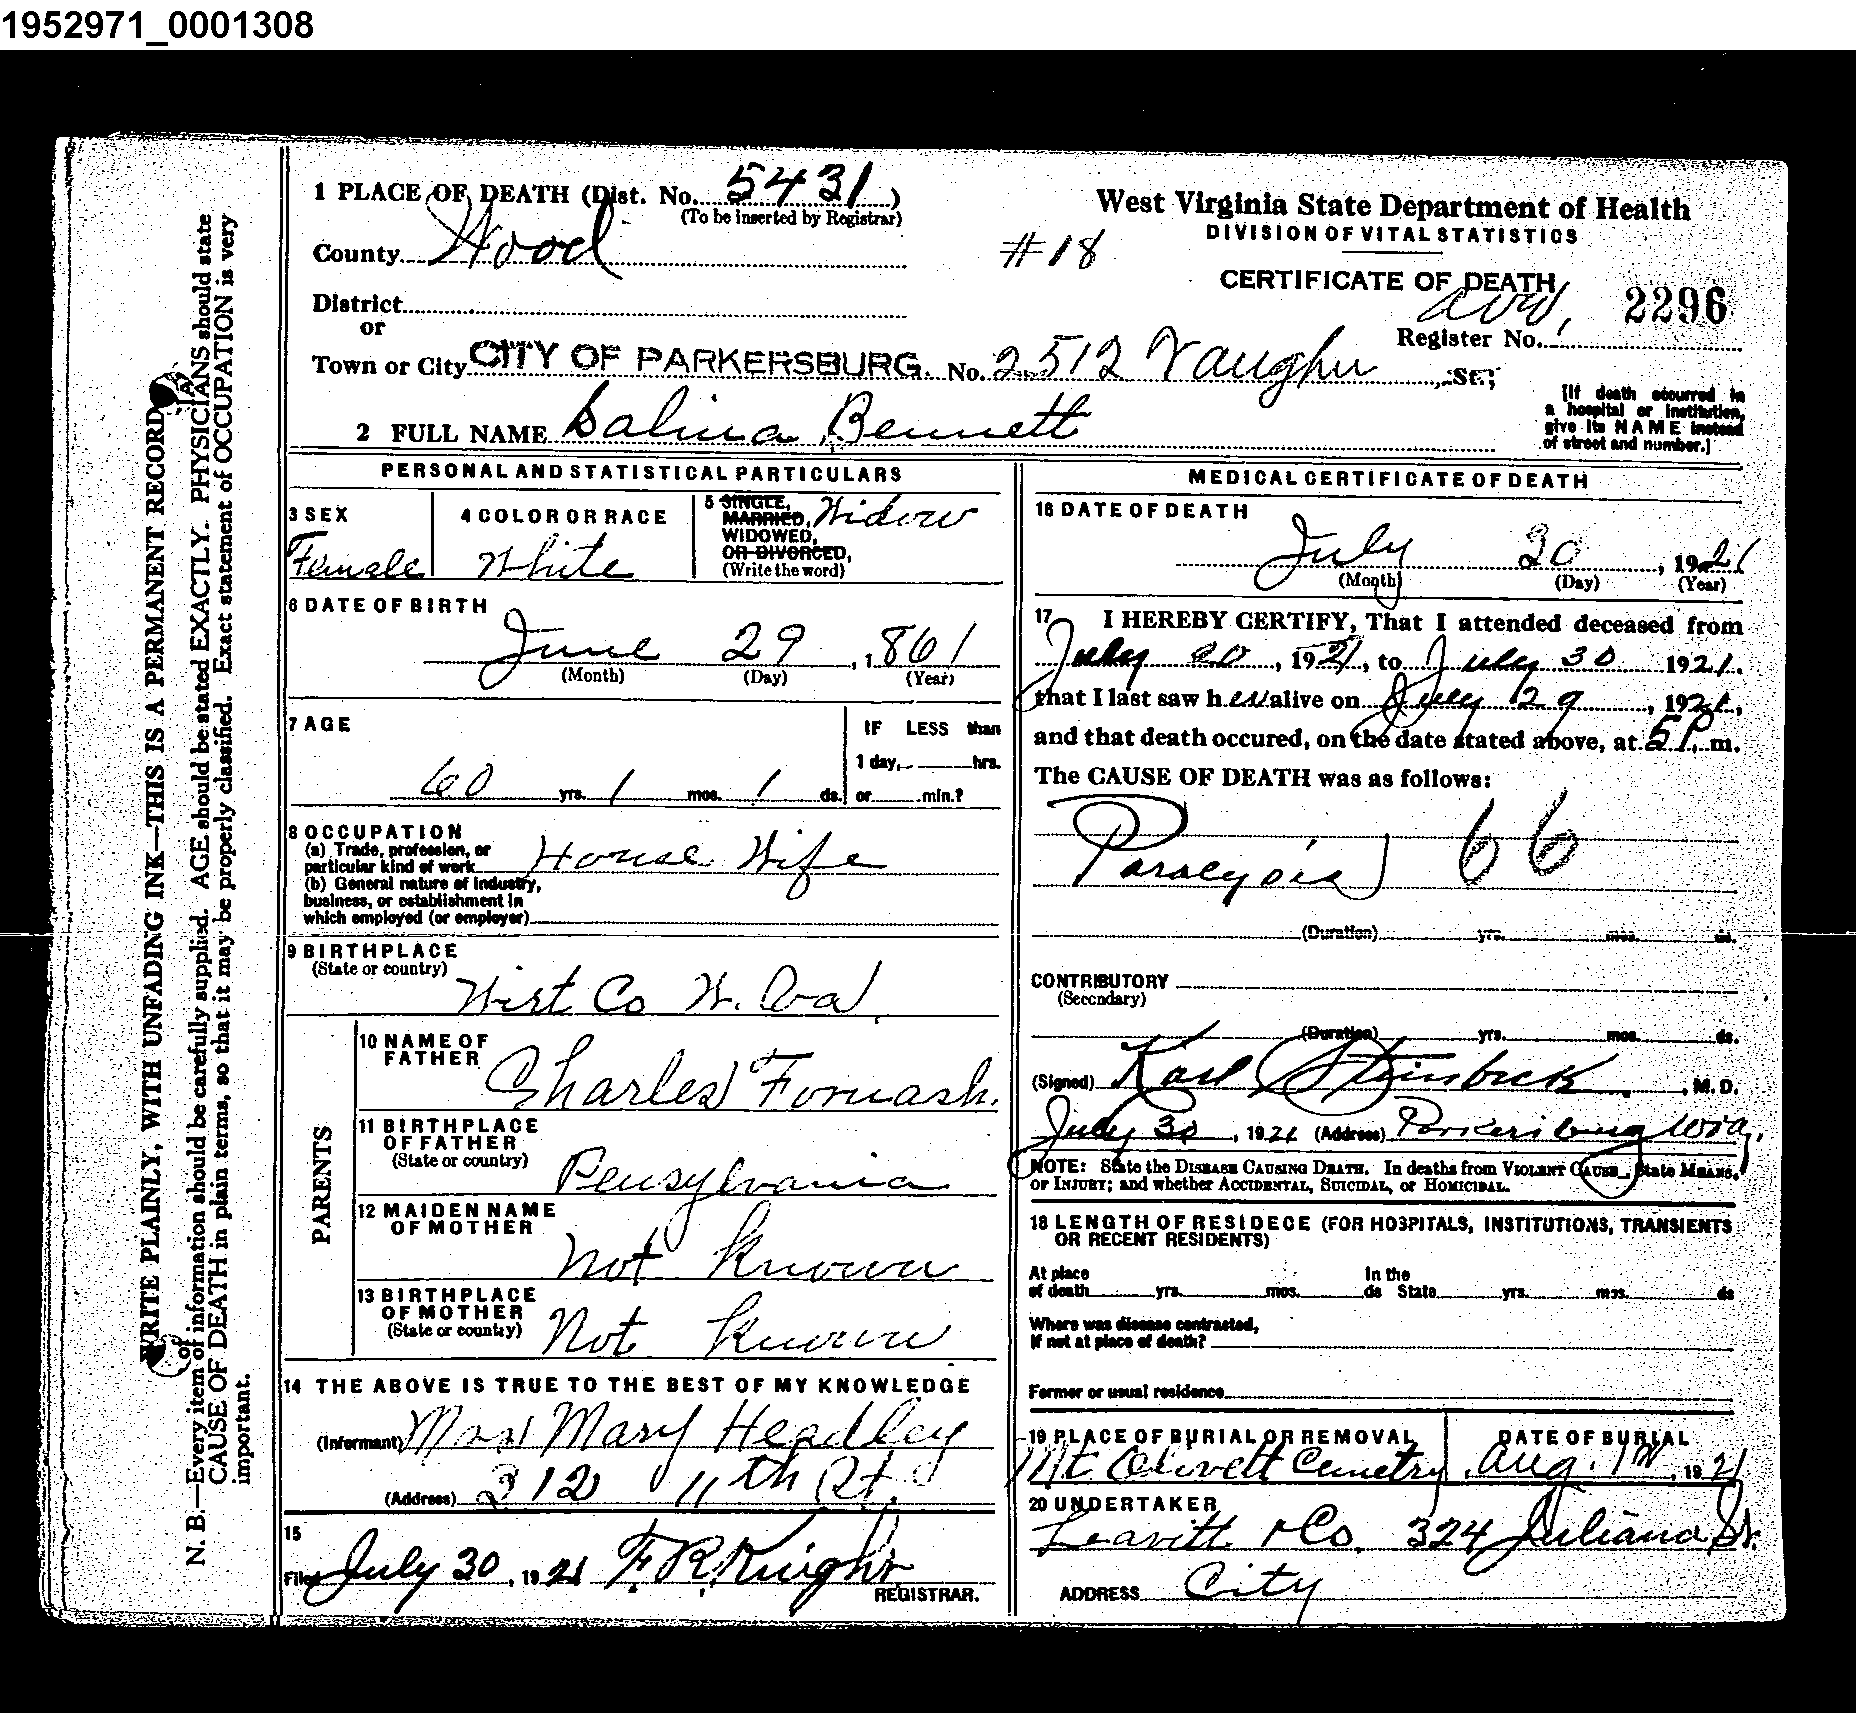 1952971_0001308
1 PLACE OF DEATH (Dist. No. 5431)
(To be inserted by Registrar)
County Wood
District
or
Town or City CITY OF PARKERSBURG. No. 2512 Vaughn St;
2 FULL NAME Salina Bennett
West Virginia State Department of Health
DIVISION OF VITAL STATISTICS
#18
CERTIFICATE OF DEATH
2296
Register No.
[If death occurred in
a hospital or institution,
give its NAME instead
of street and number.]
PERSONAL AND STATISTICAL PARTICULARS
3 SEX
Female
4 COLOR OR RACE
White
5 SINGLE,
MARRIED,
WIDOWED,
OR DIVORCED,
(Write the word)
Widow
6 DATE OF BIRTH
June 29, 1861
(Month) (Day) (Year)
7 AGE
60 yrs. 1 mos. 1 ds.
IF LESS than
1 day, hrs.
or min.?
8 OCCUPATION
(a) Trade, profession, or
particular kind of work House Wife
(b) General nature of industry,
business, or establishment in
which employed (or employer)
9 BIRTHPLACE
(State or country)
Wirt Co W. Va.
PARENTS
10 NAME OF
FATHER
Charles Fornash.
11 BIRTHPLACE
OF FATHER
(State or country)
Pensylvania
12 MAIDEN NAME
OF MOTHER
Not Known
13 BIRTHPLACE
OF MOTHER
(State or country)
Not Known
14 THE ABOVE IS TRUE TO THE BEST OF MY KNOWLEDGE
(Informant) Mrs Mary Headley
(Address) 312 11th St.
15
Filed July 30, 1921 F. R. Knight
REGISTRAR.
MEDICAL CERTIFICATE OF DEATH
16 DATE OF DEATH
July 30, 1921
(Month) (Day) (Year)
17 I HEREBY CERTIFY, That I attended deceased from
July 20, 1921, to July 30 1921.
that I last saw her alive on July 29, 1921,
and that death occured, on the date stated above, at 5 P. m.
The CAUSE OF DEATH was as follows:
Paralysis 66
(Duration) yrs. mos. ds.
CONTRIBUTORY
(Secondary)
(Duration) yrs. mos. ds.
(Signed) Karl Steinbeck, M. D.
July 30, 1921 (Address) Parkersburg W Va.
NOTE: State the DISEASE CAUSING DEATH. In deaths from VIOLENT CAUSE, State MEANS,
OF INJURY; and whether ACCIDENTAL, SUICIDAL, or HOMICIDAL.
18 LENGTH OF RESIDECE (FOR HOSPITALS, INSTITUTIONS, TRANSIENTS
OR RECENT RESIDENTS)
At place In the
of death yrs. mos. ds State yrs. mos. ds
Where was disease contracted,
If not at place of death?
Former or usual residence
19 PLACE OF BURIAL OR REMOVAL
Mt Olivett Cemetry
DATE OF BURIAL
Aug. 1st, 1921
20 UNDERTAKER
Leavitt & Co. 324 Juliana St.
ADDRESS City
WRITE PLAINLY, WITH UNFADING INK—THIS IS A PERMANENT RECORD
N. B.—Every item of information should be carefully supplied. AGE should be stated EXACTLY. PHYSICIANS should state
CAUSE OF DEATH in plain terms, so that it may be properly classified. Exact statement of OCCUPATION is very
important.